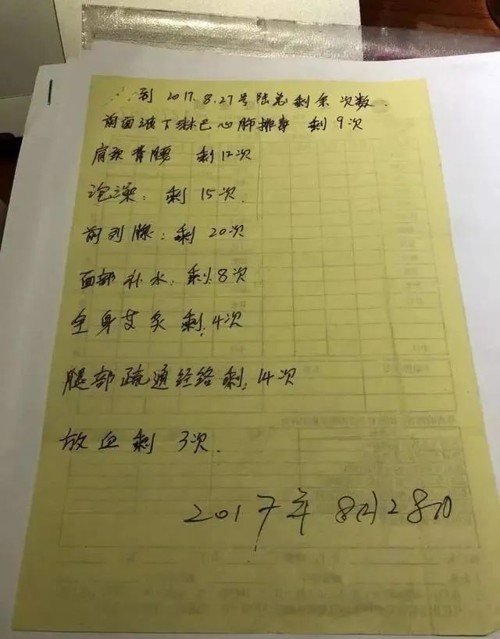 到 2017.8.27号陆总剩余次数
前面腋下淋巴心肺排毒 剩9次
肩颈背腰 剩12次
泡澡: 剩 15次
前列腺: 剩 20次
面部补水: 剩8次
全身艾灸剩:4次
腿部疏通经络剩:14次
放血剩 3次
2017年8月28日